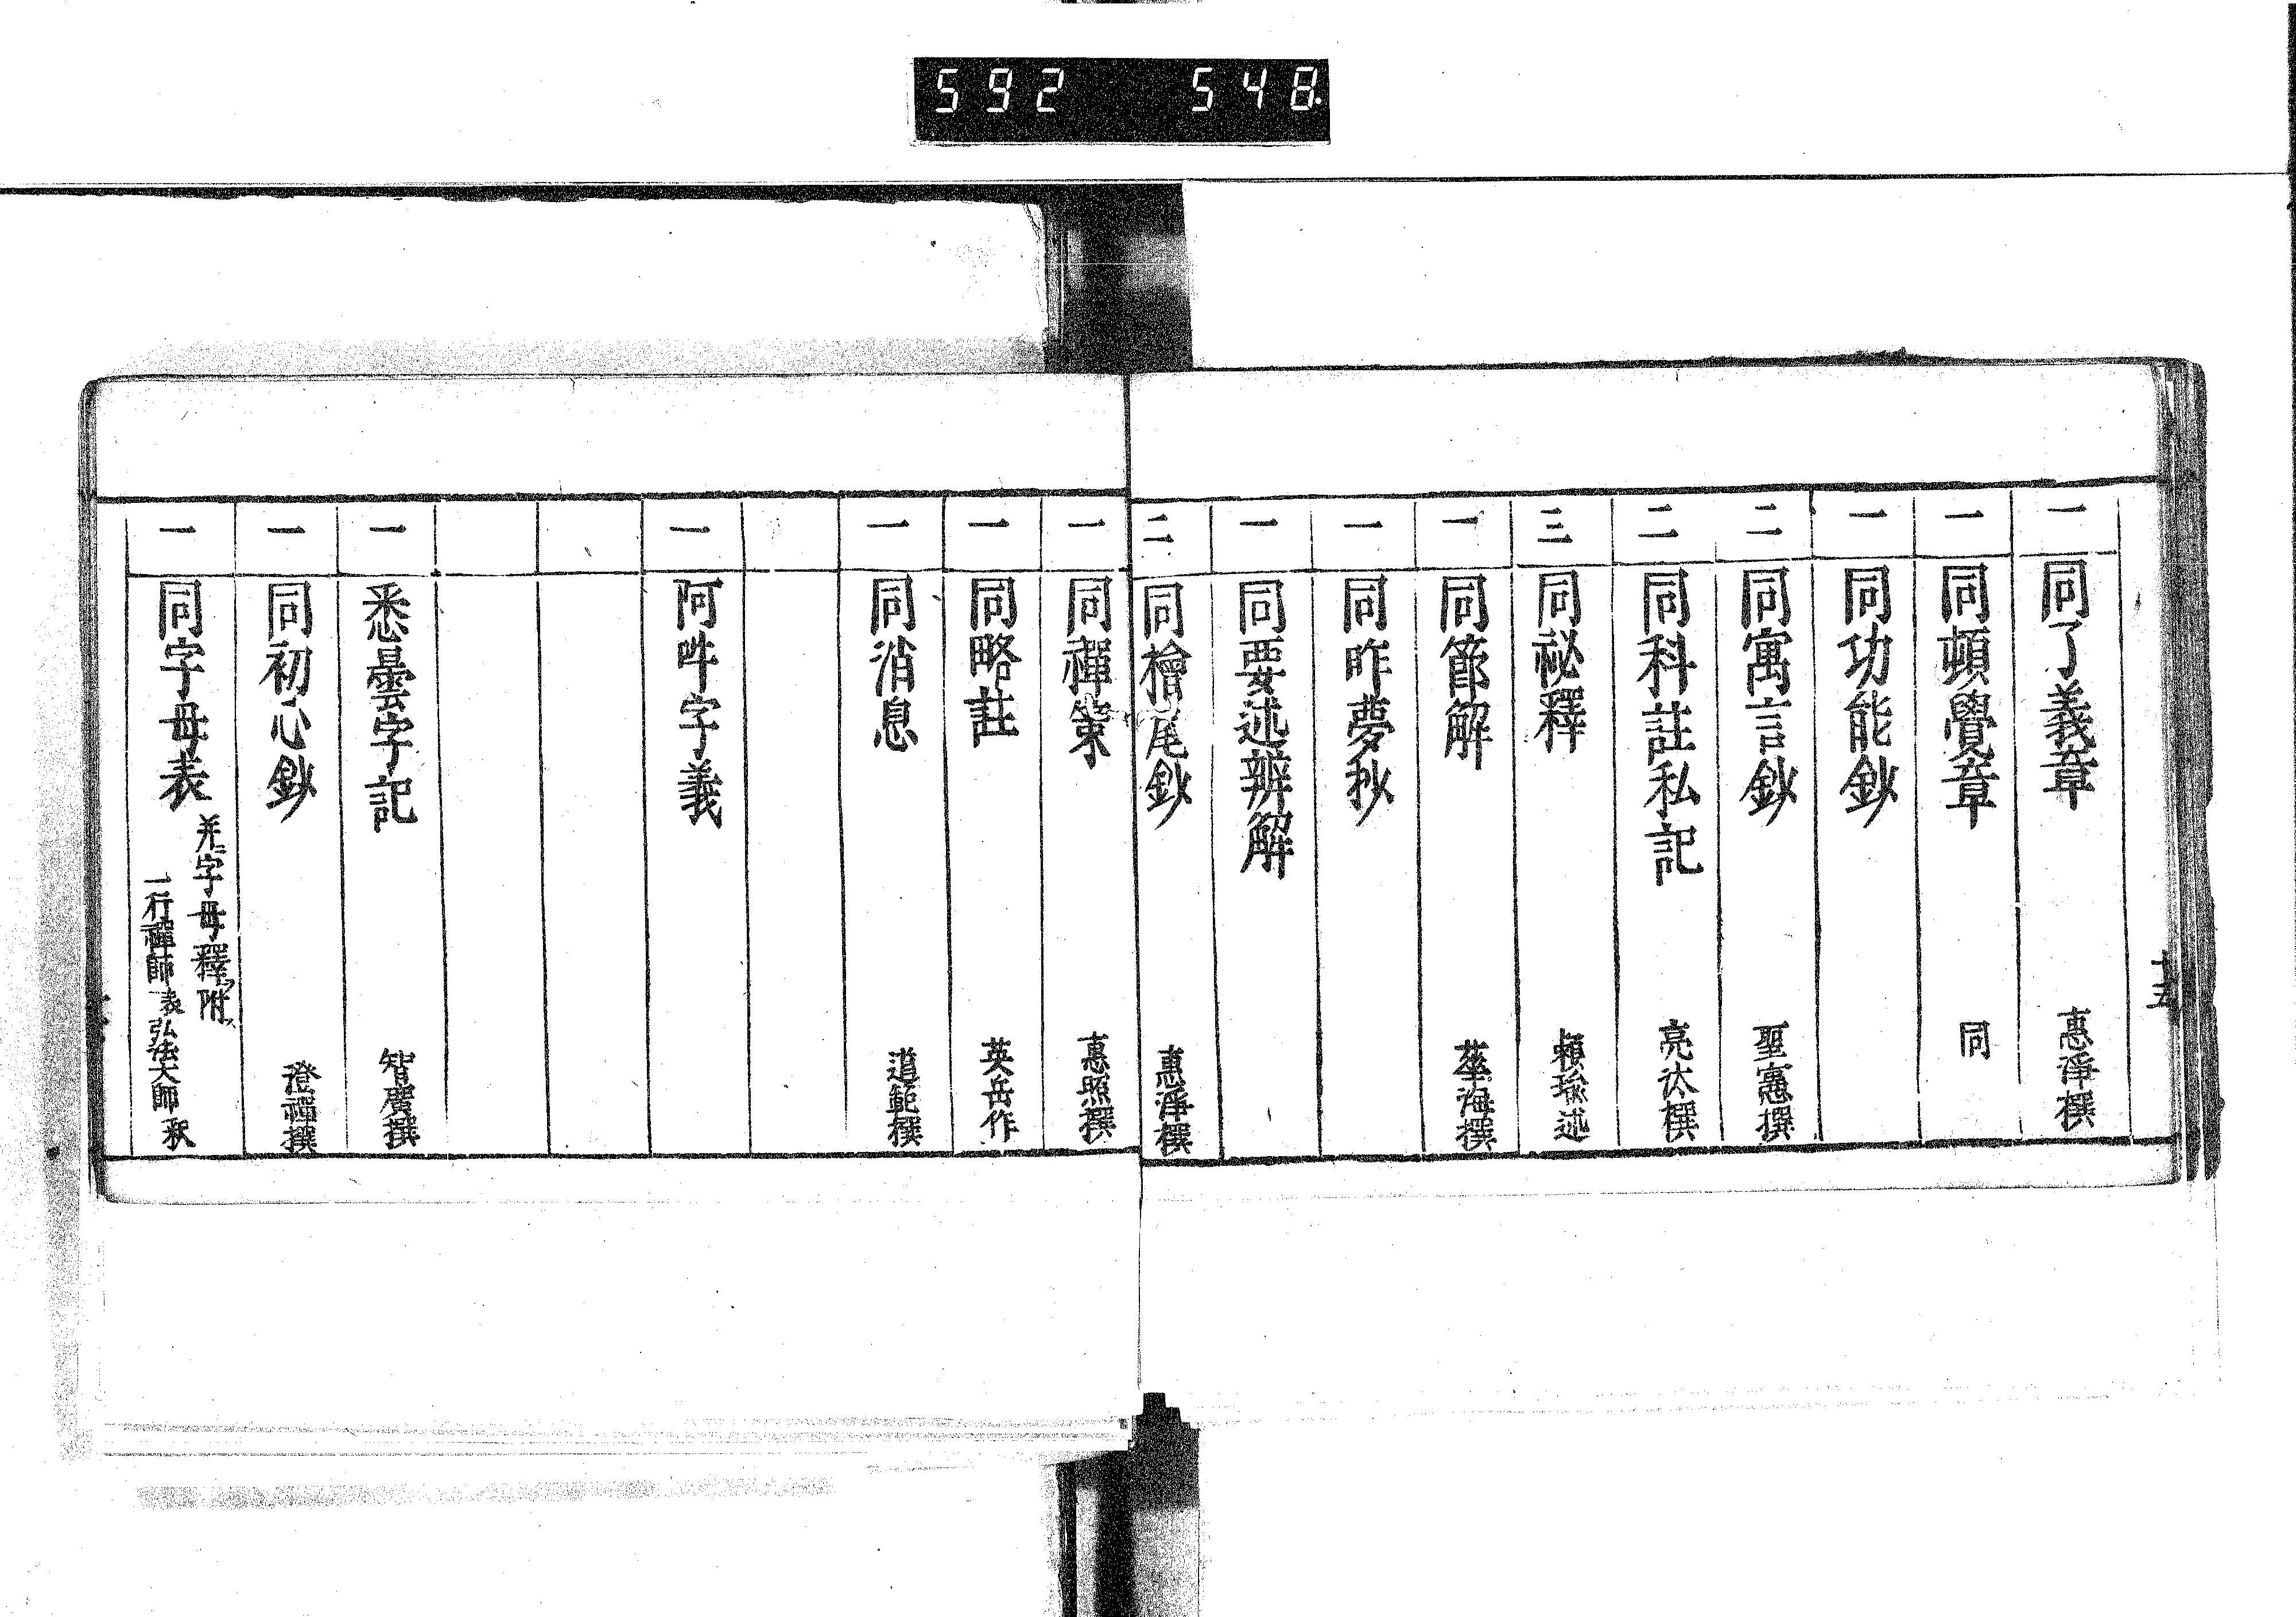 592 548.
十五
一 同了義章 惠淨撰
一 同頓覺章 同
一 同功能鈔
二 同寓言鈔 聖憲撰
二 同科註私記 亮汰撰
三 同祕釋 賴瑜述
一 同節解 萃海撰
一 同昨夢抄
一 同要述辨解
二 同檜尾鈔 惠淨撰
一 同禪策 惠照撰
一 同略註 英岳作
一 同消息 道範撰
一 阿吽字義
一 悉曇字記 智廣撰
一 同初心鈔 澄禪撰
一 同字母表 并字母釋附 一行禪師表弘法大師釈